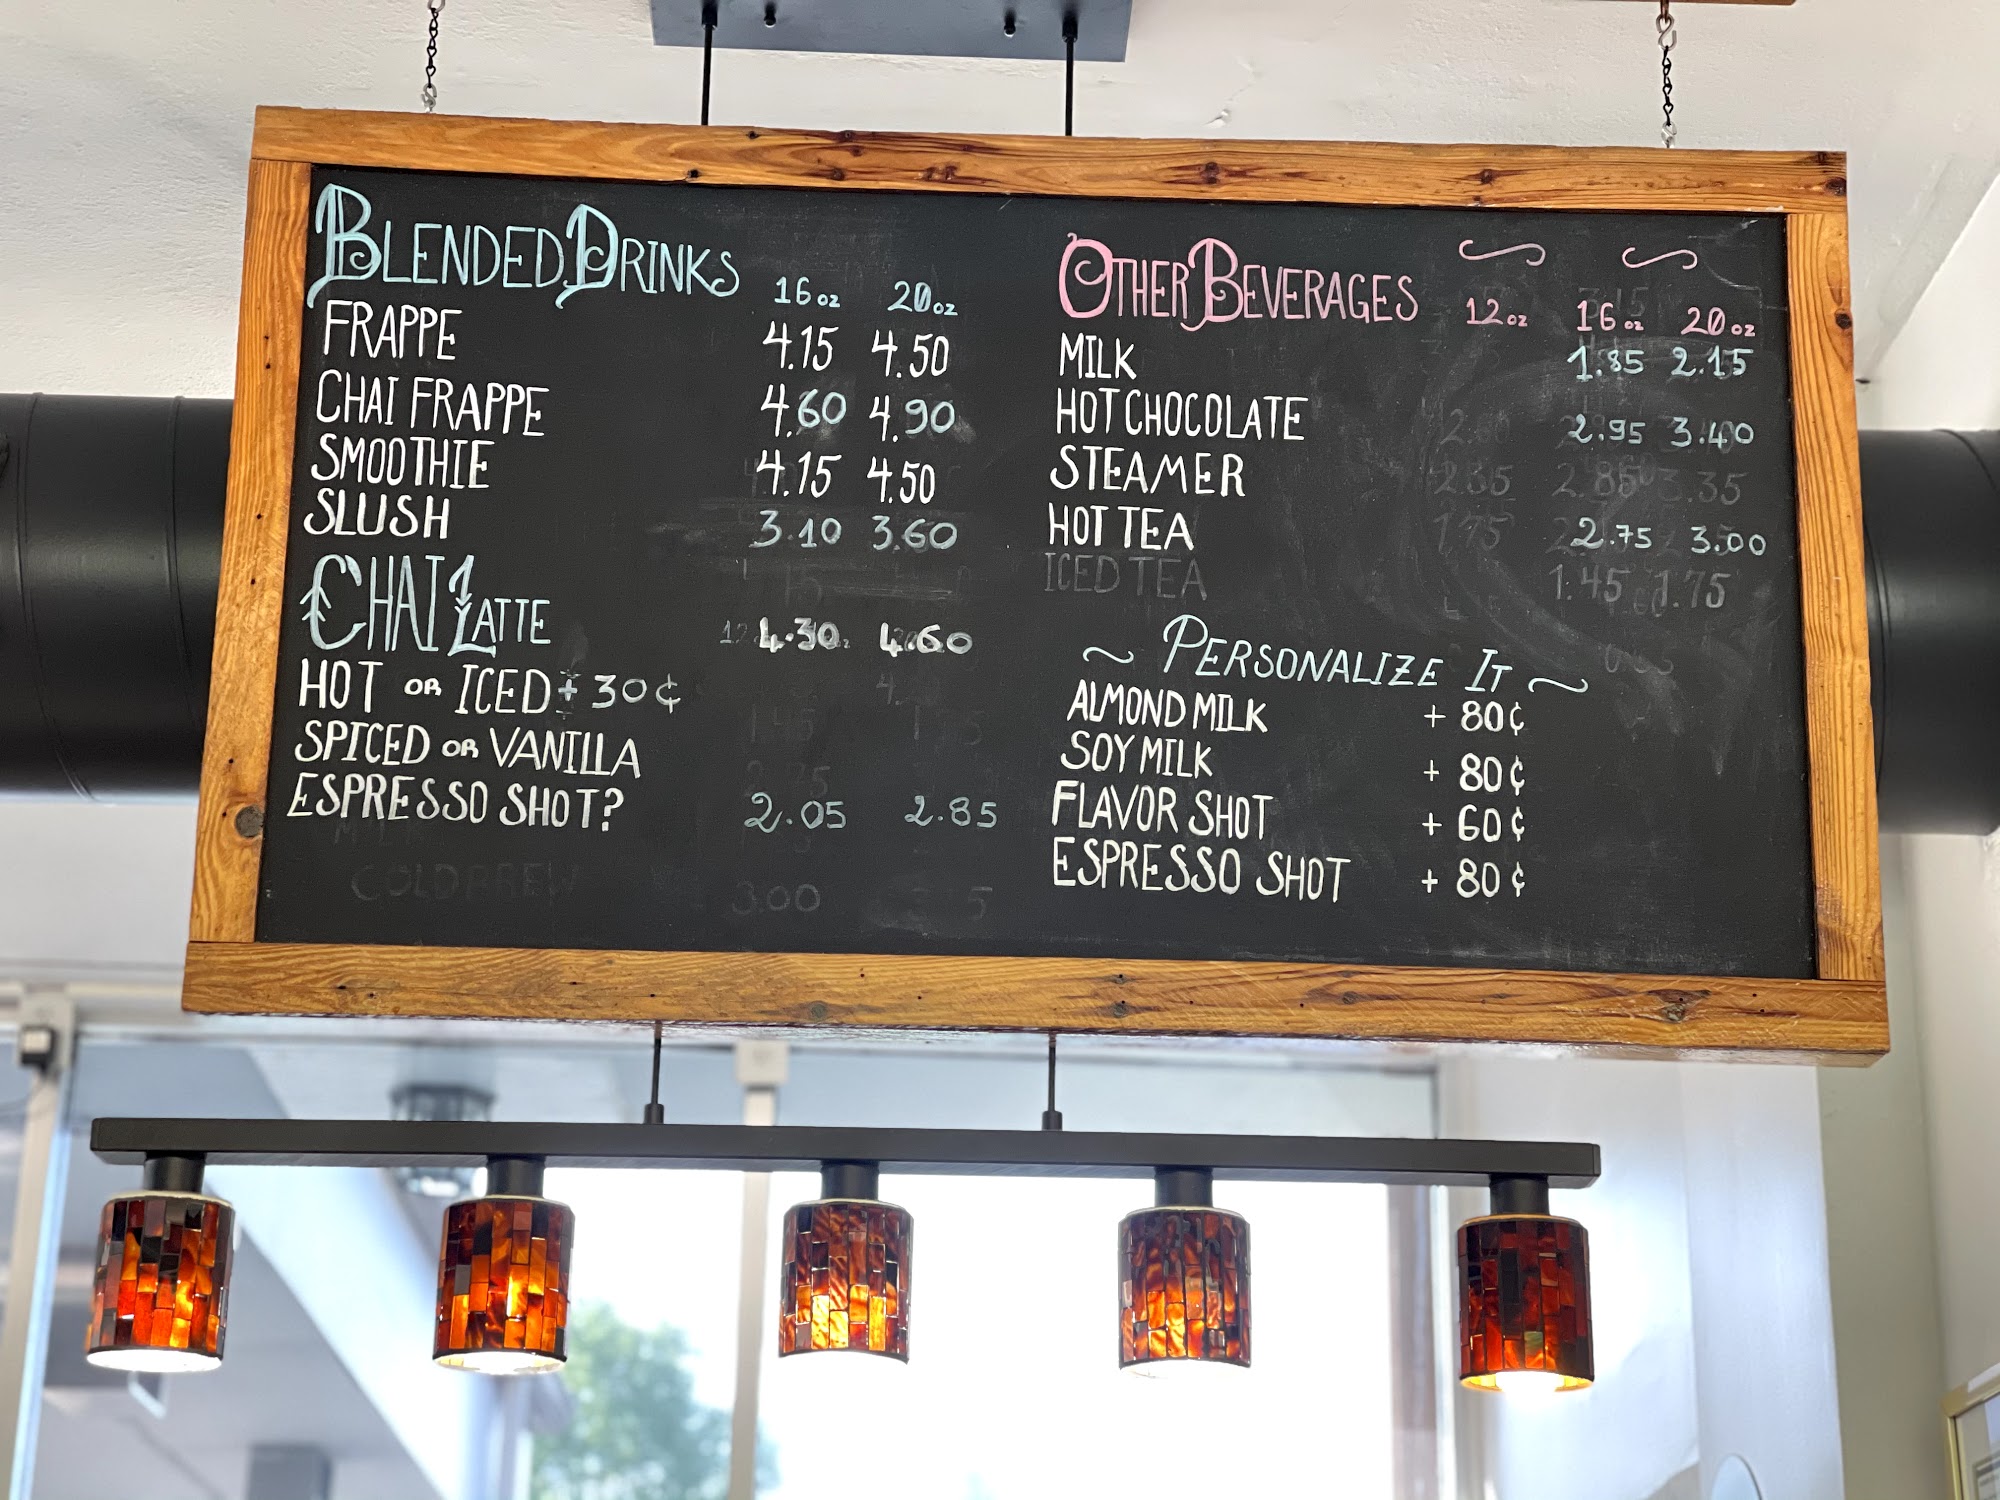 BLENDED DRINKS 16oz 20oz
FRAPPE 4.15 4.50
CHAI FRAPPE 4.60 4.90
SMOOTHIE 4.15 4.50
SLUSH 3.10 3.60
CHAI LATTE 4.30 4.60
HOT OR ICED + 30¢
SPICED OR VANILLA
ESPRESSO SHOT? 2.05 2.85
COLD BREW 3.00
OTHER BEVERAGES 12oz 16oz 20oz
MILK 1.85 2.15
HOT CHOCOLATE 2.95 3.40
STEAMER 2.85 3.35
HOT TEA 1.75 2.75 3.00
ICED TEA 1.45 1.75
~ PERSONALIZE IT ~
ALMOND MILK + 80¢
SOY MILK + 80¢
FLAVOR SHOT + 60¢
ESPRESSO SHOT + 80¢